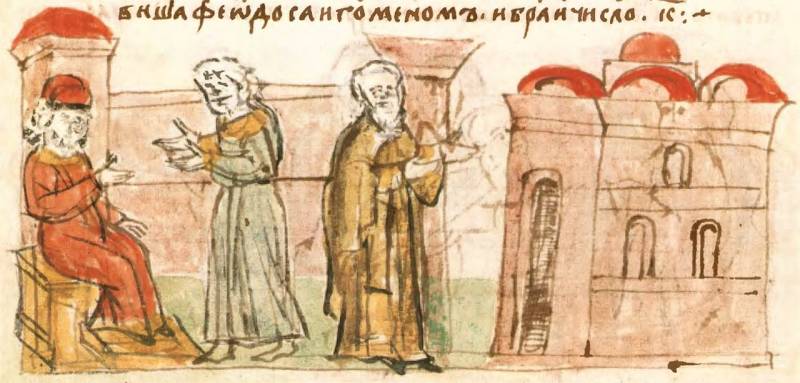 виша феѡдоса игоменомъ. и братии число. к:~